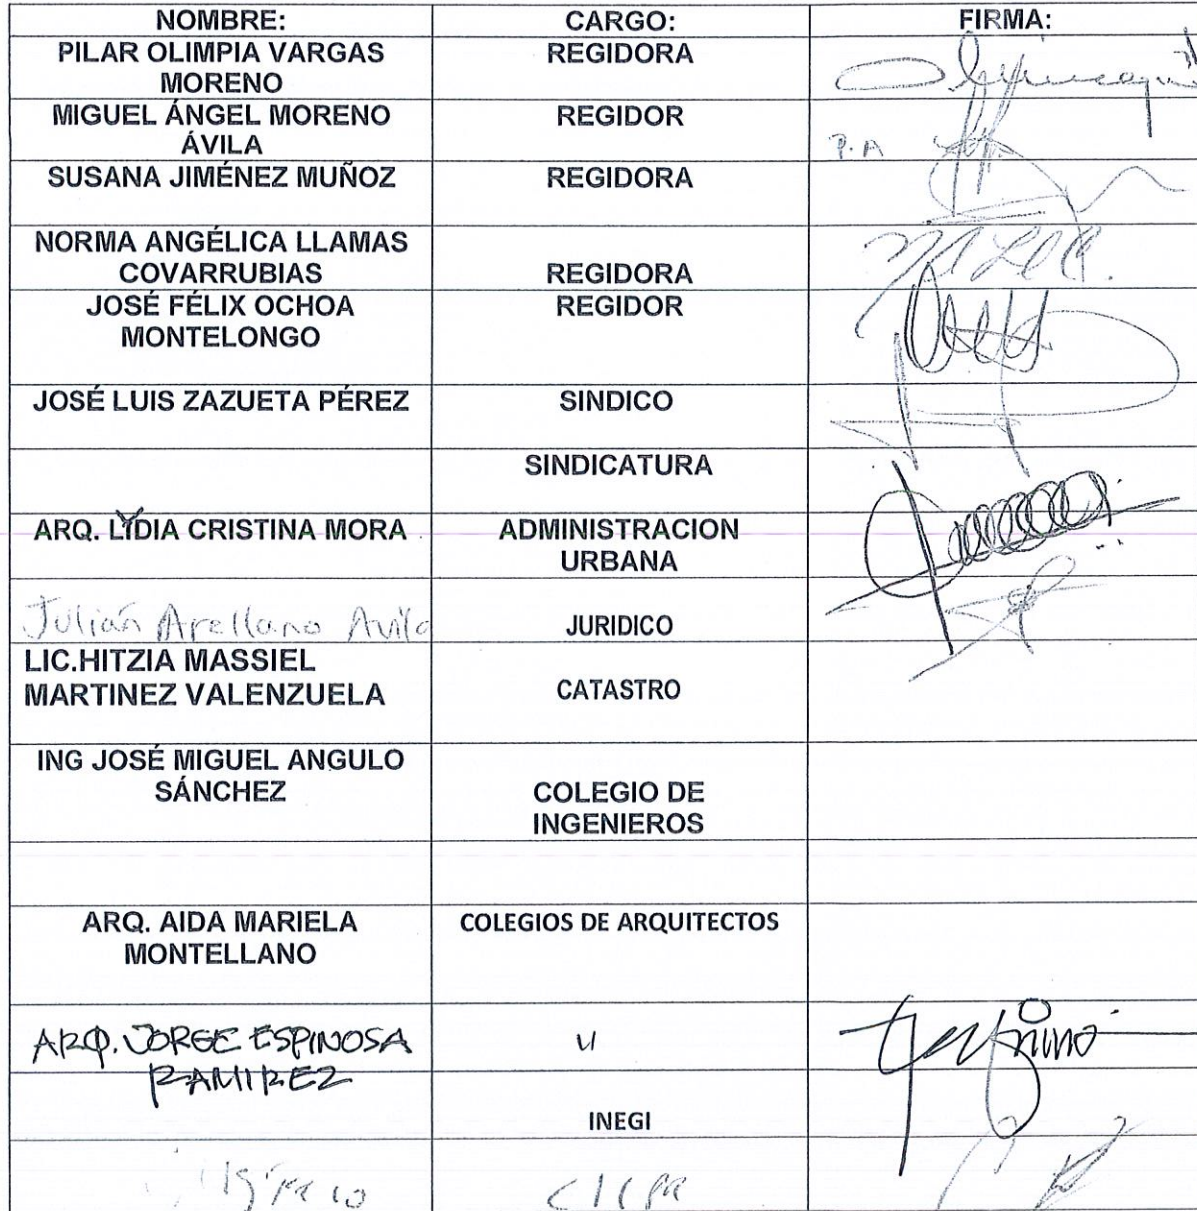 NOMBRE: CARGO: FIRMA:
PILAR OLIMPIA VARGAS REGIDORA
MORENO
MIGUEL ÁNGEL MORENO REGIDOR
ÁVILA P.A
SUSANA JIMÉNEZ MUÑOZ REGIDORA
NORMA ANGÉLICA LLAMAS
COVARRUBIAS REGIDORA
JOSÉ FÉLIX OCHOA REGIDOR
MONTELONGO
JOSÉ LUIS ZAZUETA PÉREZ SINDICO
SINDICATURA
ARQ. LYDIA CRISTINA MORA ADMINISTRACION
URBANA
Julián Arellano Avila JURIDICO
LIC.HITZIA MASSIEL
MARTINEZ VALENZUELA CATASTRO
ING JOSÉ MIGUEL ANGULO
SÁNCHEZ COLEGIO DE
INGENIEROS
ARQ. AIDA MARIELA COLEGIOS DE ARQUITECTOS
MONTELLANO
ARQ. JORGE ESPINOSA
RAMIREZ
INEGI